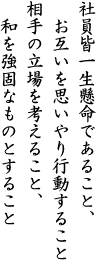 社員皆一生懸命であること、
お互いを思いやり行動すること
相手の立場を考えること、
和を強固なものとすること